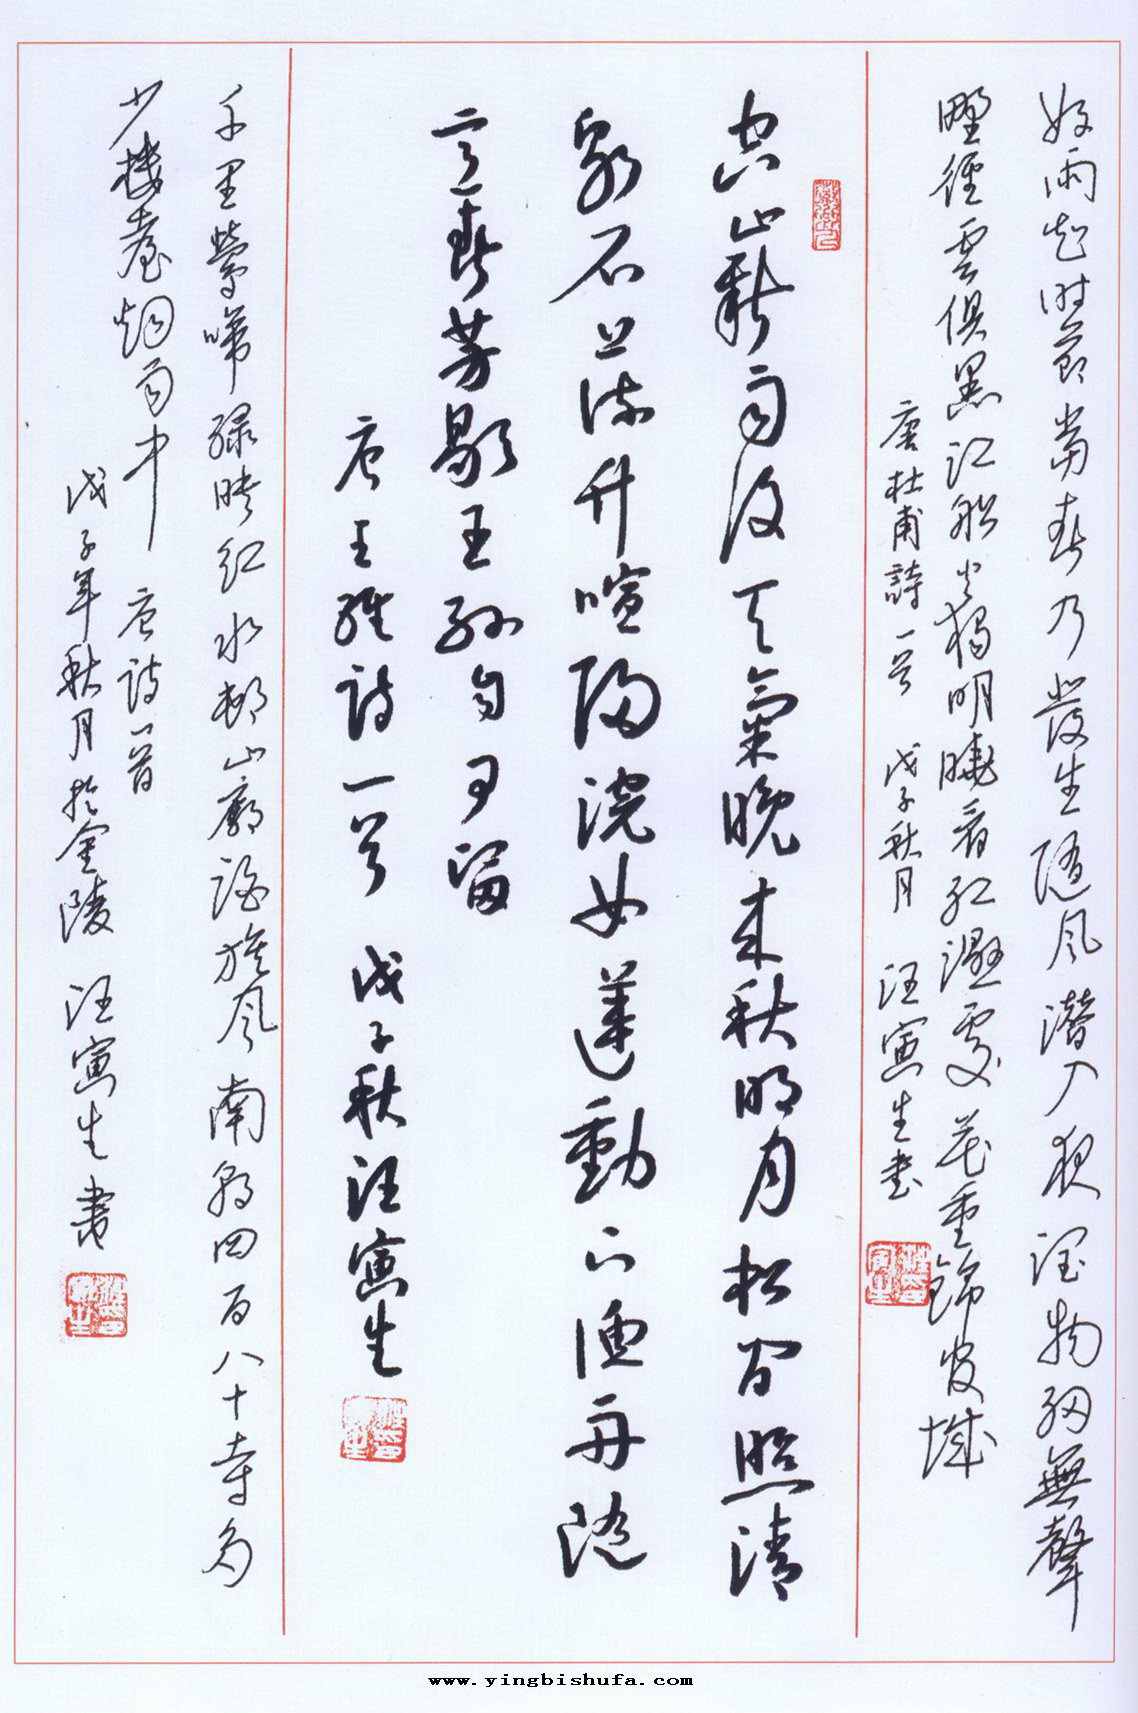 好雨知時節當春乃發生随风潜入夜润物细無聲
野徑雲俱黑江船火獨明曉看红濕處花重錦官城
唐杜甫詩一首 戊子秋月 汪寅生书
空山新雨後天氣晚来秋明月松间照清
泉石上流竹喧归浣女蓮動下渔舟随
意春芳歇王孙自可留
唐王维诗一首 戊子秋汪寅生
千里莺啼绿映红水村山廓酒旗风南朝四百八十寺多
少楼臺烟雨中 唐诗一首
戊子年秋月於金陵 汪寅生书
www.yingbishufa.com